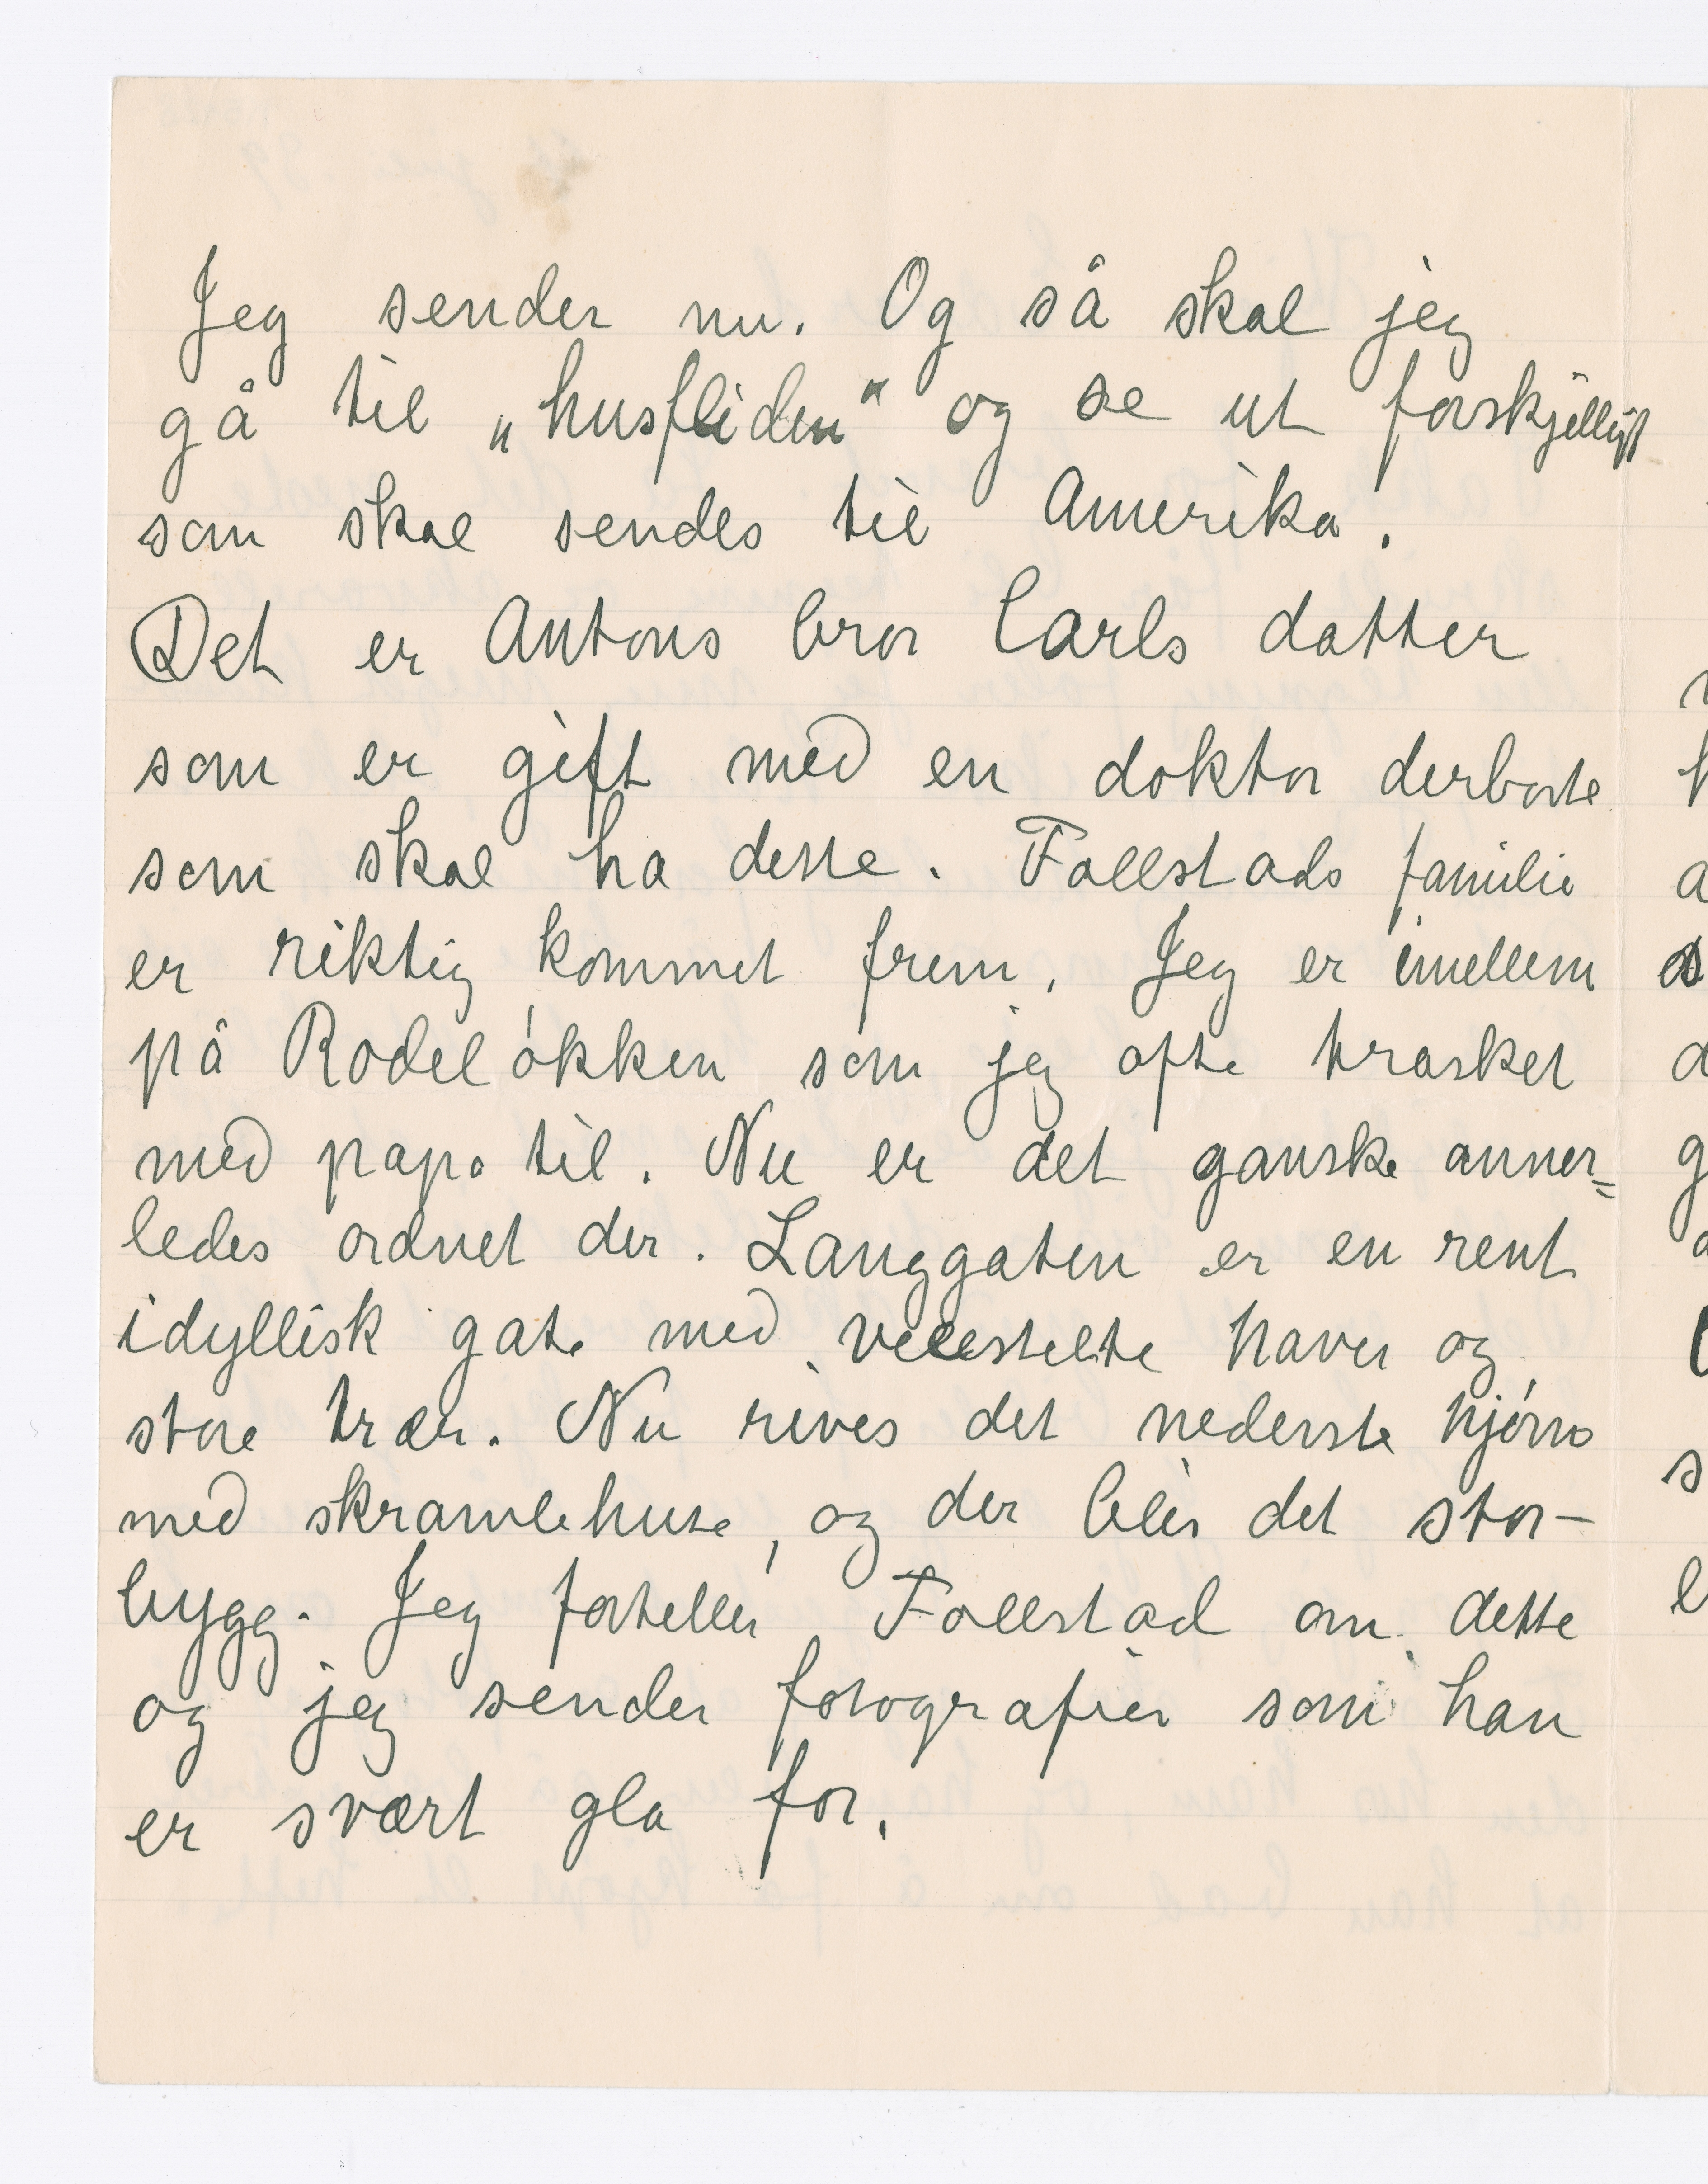 Jeg sender nu. Og så skal jeg
gå til „husfliden" og se ut forskjelligt
som skal sendes til Amerika.
Det er Antons bror Carls datter
som er gift med en doktor derborte
som skal ha dette. Fallstads familie
er riktig kommet frem. Jeg er imellem
på Rodeløkken som jeg ofte trasket
med papa til. Nu er det ganske anner=
ledes ordnet der. Langgaten er en rent
idyllisk gate med velstelte haver og
store trær. Nu rives det nederste hjørne
med skramlehuse, og der blir det stor-
bygg. Jeg forteller Fallstad om dette
og jeg sender fotografier som han
er svært gla for.